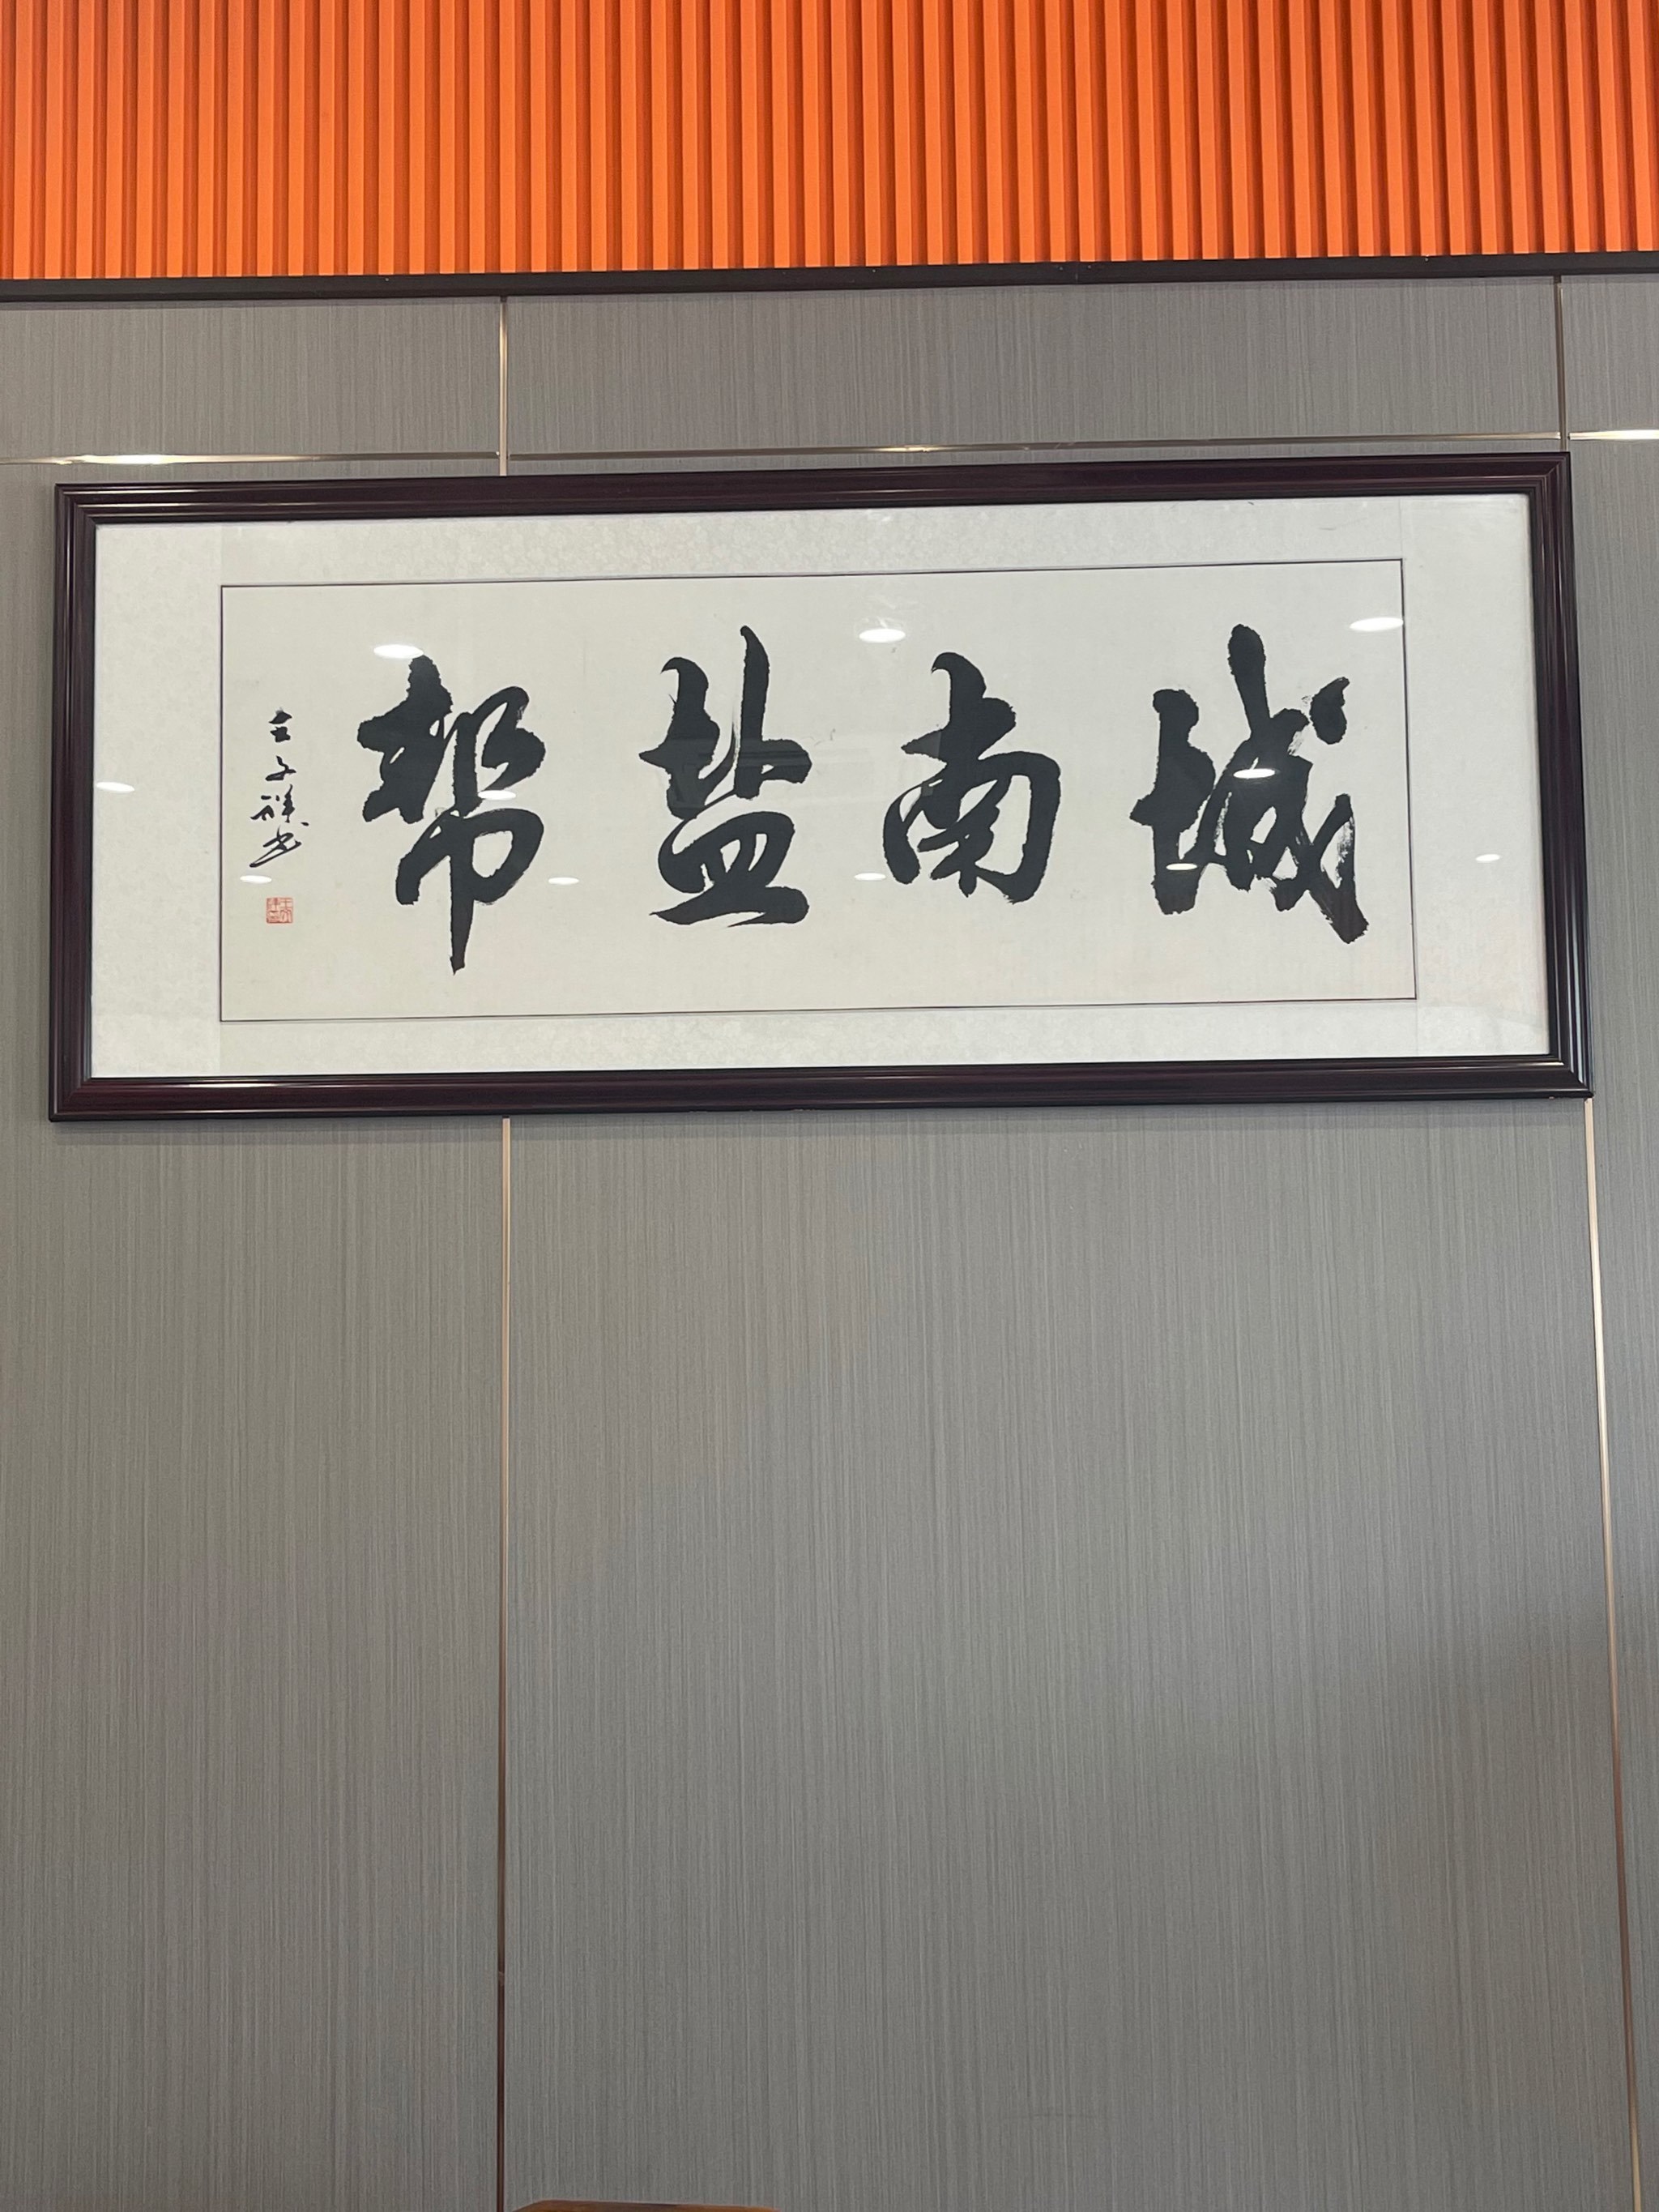 城南盐帮
王子祥书